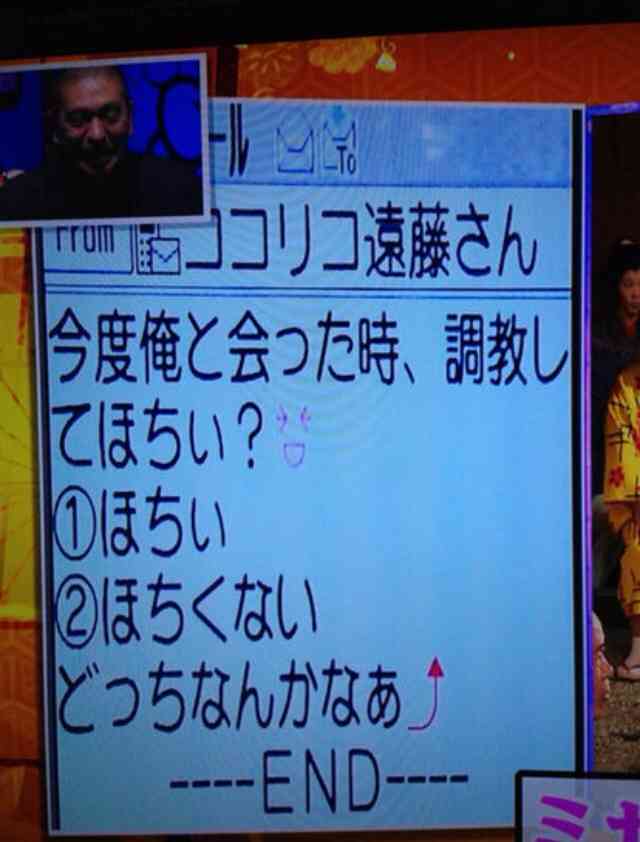 ール To
From ココリコ遠藤さん
今度俺と会った時、調教し
てほちぃ？
①ほちぃ
②ほちくない
どっちなんかなぁ
----END----
ミヤ